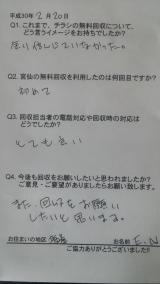 平成30年2月20日
Q1. これまで、チラシの無料回収について、
どう言うイメージをお持ちでしたか?
していなかった。
Q2. 宮仙の無料回収を利用したのは何回目ですか?
初めて
Q3. 回収担当者の電話対応や回収時の対応は
どうでしたか?
とても良い
Q4. 今後も回収をお願いしたいと思われますか?
ご意見・ご要望がありましたらお願い致します。
また、回収をお願い
したいと思います。
お住まいの地区 お名前 E.N
ご協力ありがとうございました!!